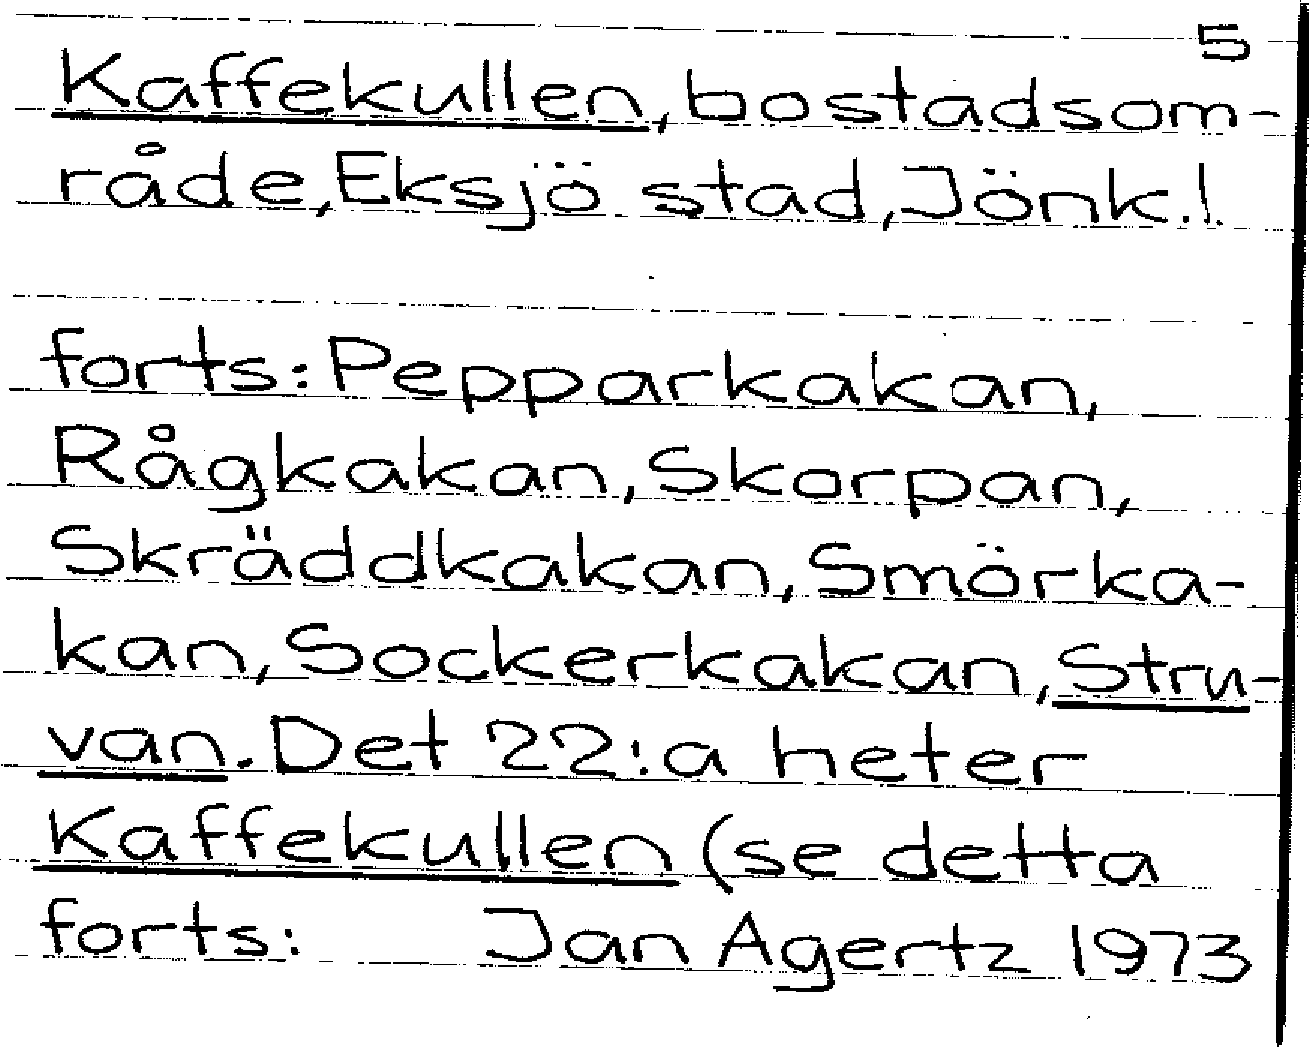 5
Kaffekullen, bostadsom-
råde, Eksjö stad, Jönk. l.
forts: Pepparkakan,
Rågkakan, Skorpan,
Skräddkakan, Smörka-
kan, Sockerkakan, Stru-
van. Det 22:a heter
Kaffekullen (se detta
forts: Jan Agertz 1973